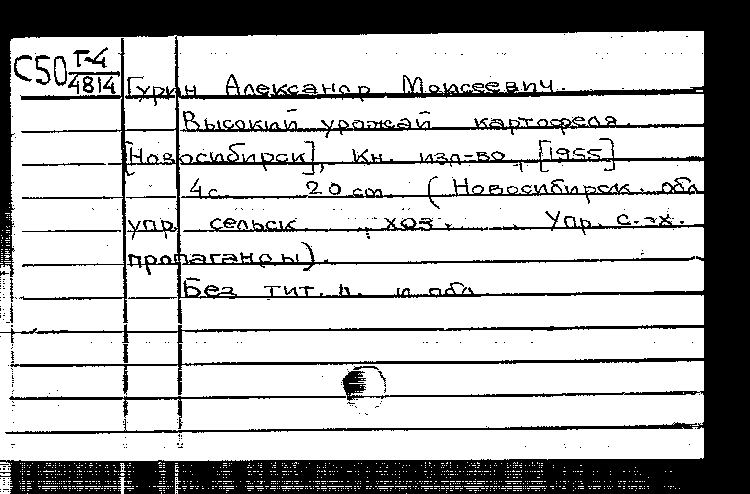 С50 Г-4
4814
Гурин Александр Моисеевич.
Высокий урожай картофеля.
[Новосибирск], Кн. изд-во, [1955]
4 с. 20 см. (Новосибирск. обл
упр. сельск. хоз. Упр. с.-х.
пропаганды).
Без тит. л. и обл.